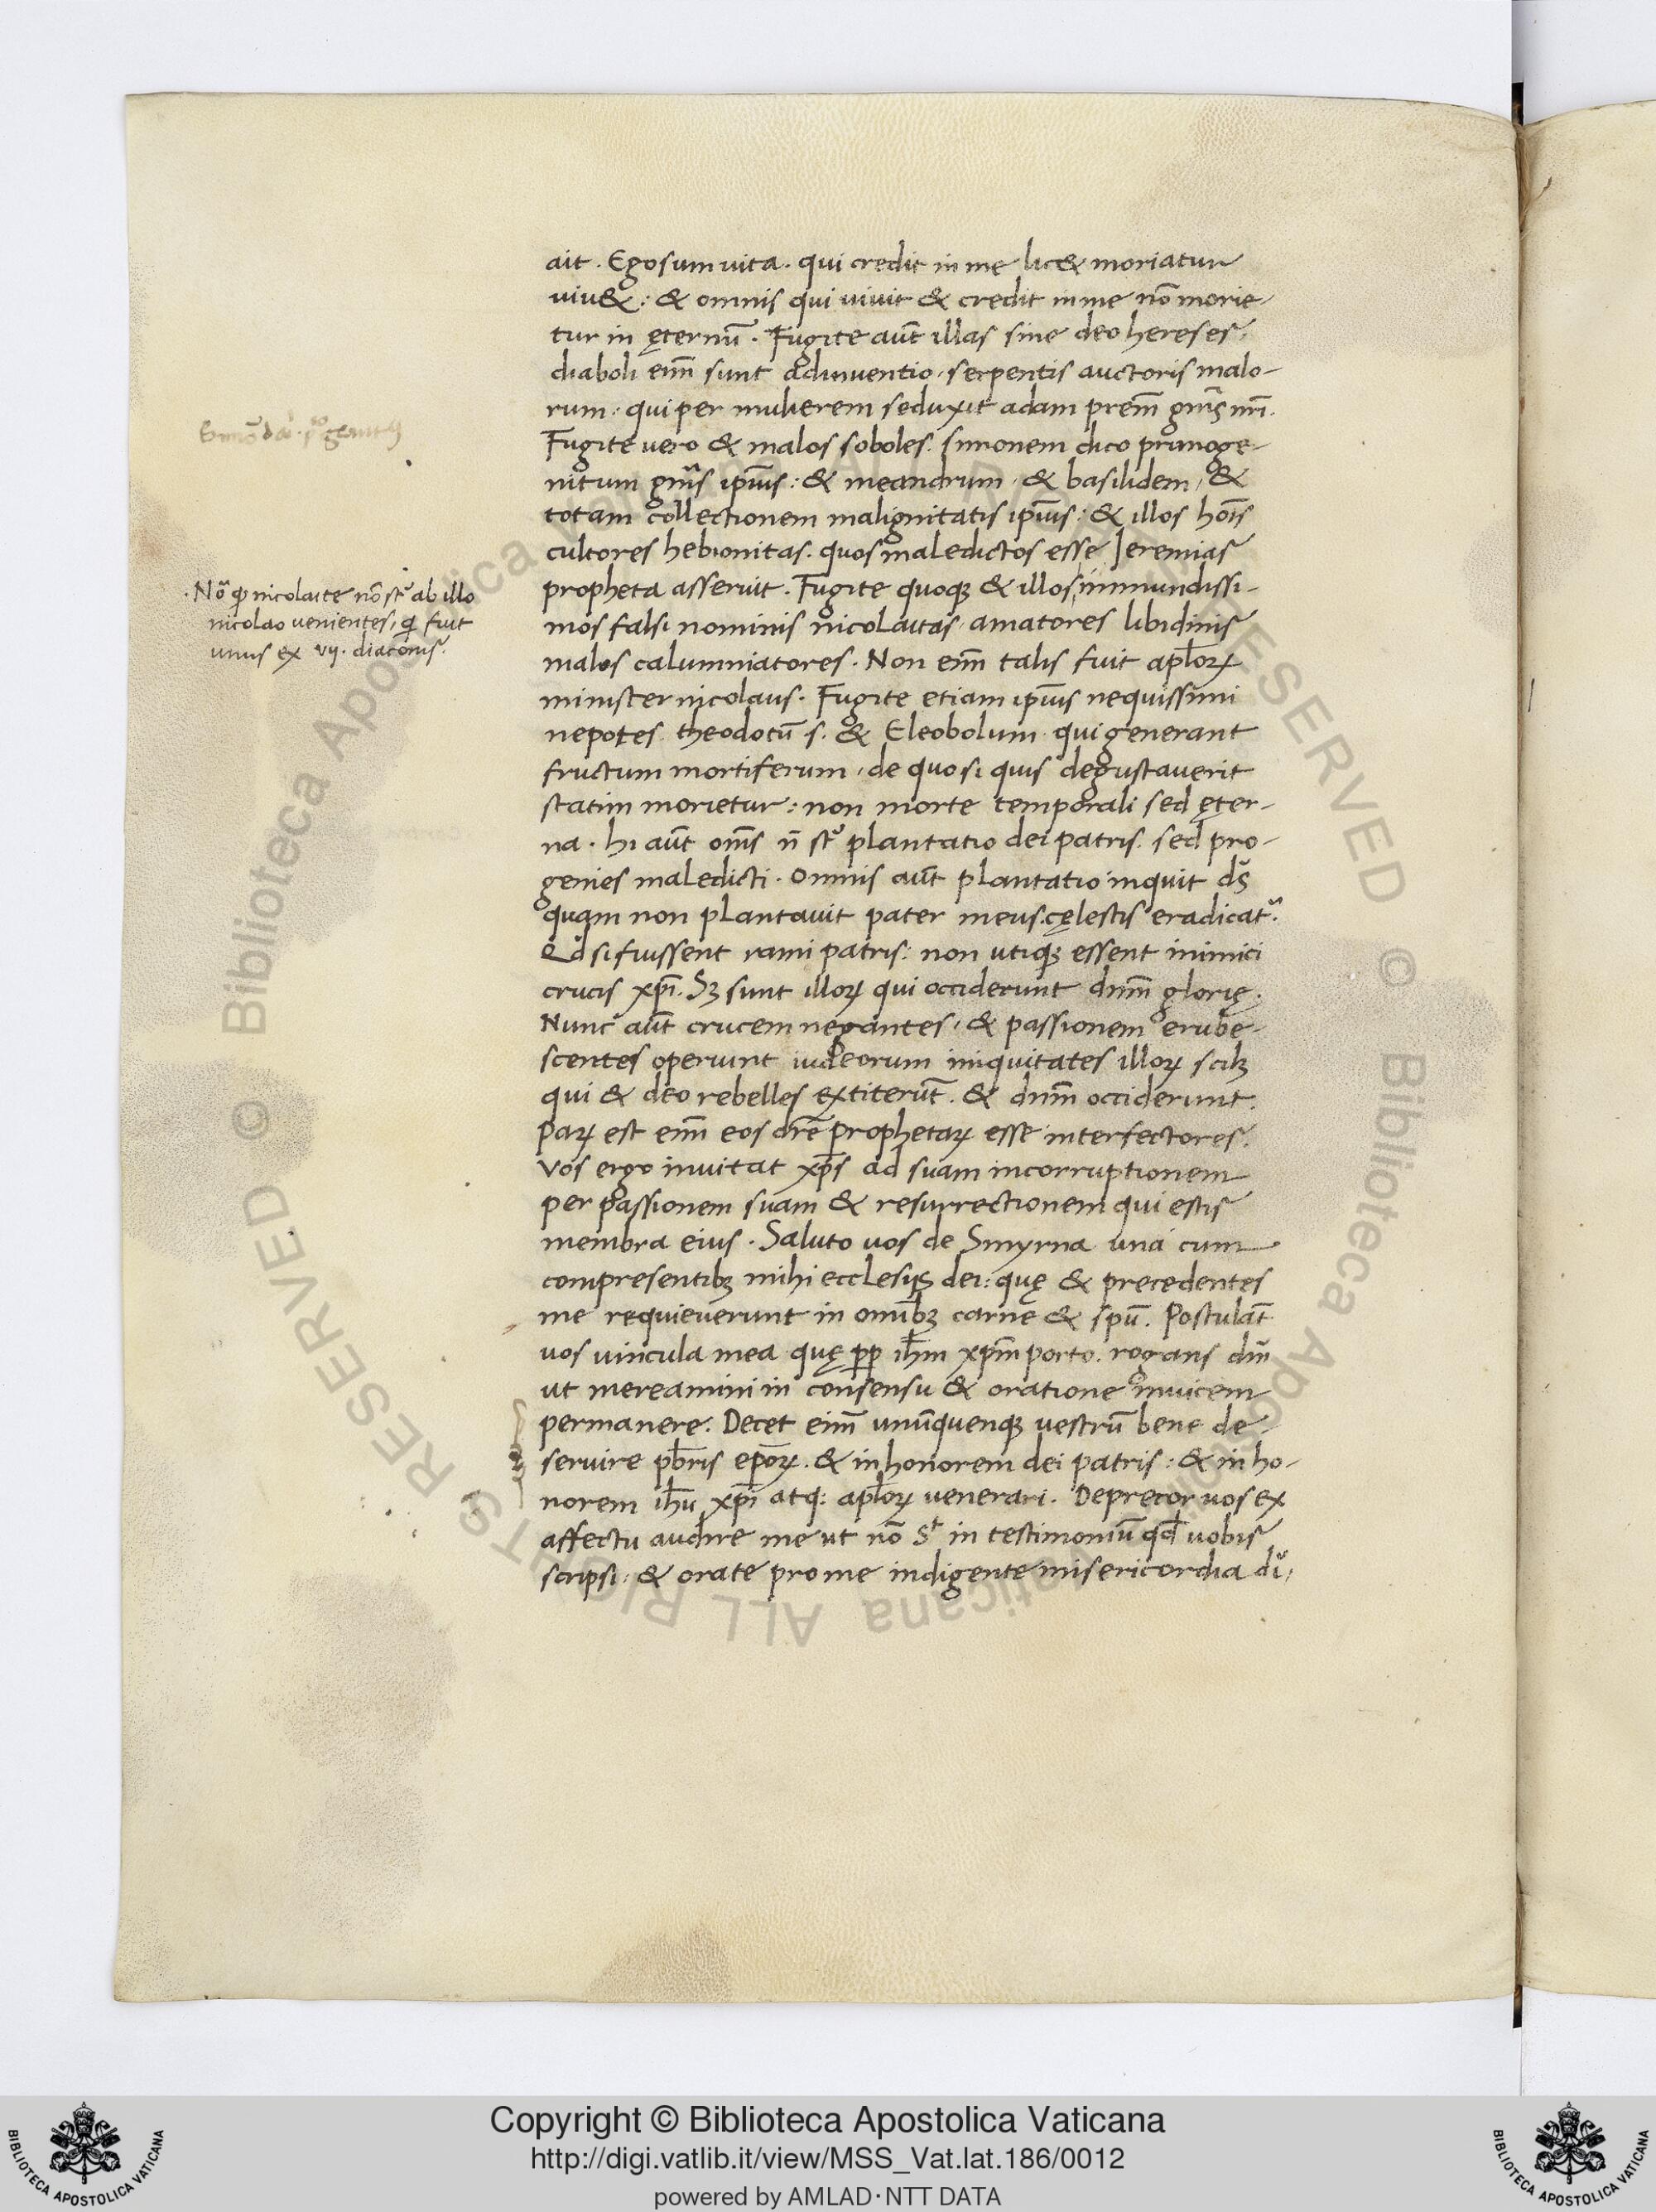 ait. Ego sum vita. qui credit in me lic& moriatur
viv&: & omnis qui vivit & credit in me nō morie-
tur in ęternū. Fugite aūt illas sine deo hereses.
diaboli eīm sunt adinventio, serpentis auctoris malo-
rum: qui per mulierem seduxit adam prēm gnīs nrī.
Fugite vero & malos soboles. simonem dico primoge-
nitum gnīs ipīus: & meandrum, & basilidem, &
totam collectionem malignitatis ipīus: & illos hoīs
cultores hebionitas. quos maledictos esse Jeremias
propheta asseruit. Fugite quoqꝫ & illos immundissi-
mos falsi nominis nicolaitas, amatores libidinis
malos calumniatores. Non eīm talis fuit apl̄oꝝ
minister nicolaus. Fugite etiam ipīus nequissimi
nepotes theodotū s. & Eleobolum qui generant
fructum mortiferum, de quo si quis degustaverit
statim morietur: non morte temporali sed ęter-
na. hi aūt om̄s n̄ st̄ plantatio dei patris. sed pro-
genies maledicti. Omnis aūt plantatio inquit dn̄s
quam non plantavit pater meus cęlestis eradicat᷑.
Qd̄ si fuissent rami patris: non utiqꝫ essent inimici
crucis xp̄i. Sꝫ sunt illoꝝ qui occiderunt dnm̄ glorię.
Nunc aūt crucem negantes, & passionem erube-
scentes operiunt iudeorum iniquitates illoꝝ scilꝫ
qui & deo rebelles extiterūt. & dnm̄ occiderunt.
Paꝝ est eīm eos dr̄e prophetaꝝ esse interfectores.
Vos ergo invitat xp̄s ad suam incorruptionem
per passionem suam & resurrectionem qui estis
membra eius. Saluto vos de Smyrna una cum
compresentibꝫ mihi ecclesijs dei: quę & precedentes
me requieverunt in omībꝫ carne & spū. Postulāt
vos vincula mea quę pp ih̄m xp̄m porto. rogans dm̄
ut mereamini in consensu & oratione invicem
permanere. Decet eīm unūquenqꝫ vestrū bene de-
servire pb̄ris ep̄oꝝ. & in honorem dei patris: & in ho-
norem ih̄u xp̄i atqꝫ apl̄oꝝ venerari. Deprecor vos ex
affectu audire me ut nō st in testimoniū qd̄ vobis
scripsi: & orate pro me indigente misericordia dī,
.Nō q̄ nicolaite nō st̄ ab illo
nicolao venientes, q̄ fuit
unus ex vij. diaconis.
Copyright © Biblioteca Apostolica Vaticana
http://digi.vatlib.it/view/MSS_Vat.lat.186/0012
powered by AMLAD·NTT DATA
BIBLIOTECA APOSTOLICA VATICANA
BIBLIOTECA APOSTOLICA VATICANA
© Biblioteca Apostolica Vaticana ALL RIGHTS RESERVED © Biblioteca Apostolica Vaticana ALL RIGHTS RESERVED